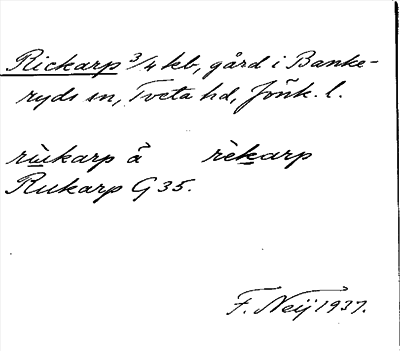 Rickarp 3/4 kb, gård i Banke-
ryds sn, Tveta hd, Jönk. l.
rùkarp å rèkarp
Rukarp G 35.
F. Neij 1937.